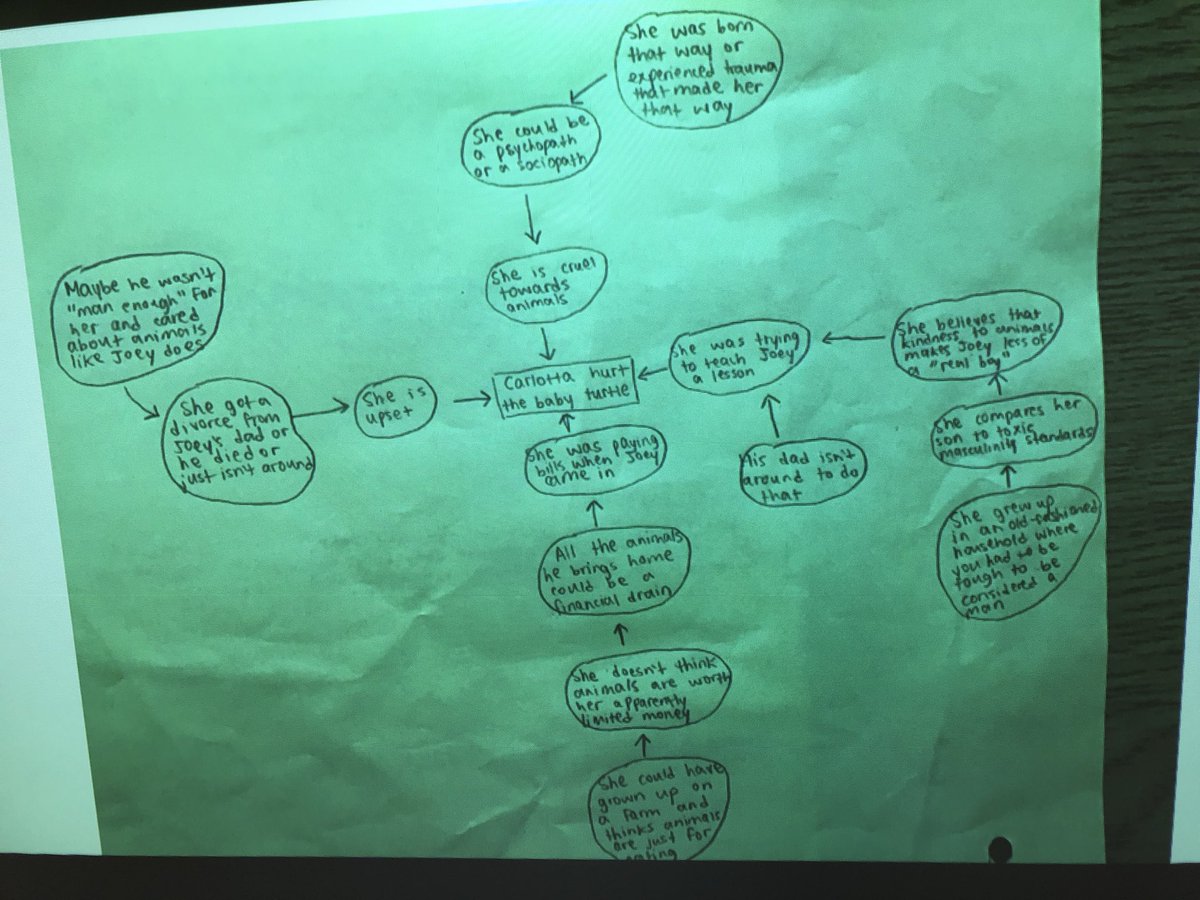 She was born
that way or
experienced trauma
that made her
that way
She could be
a psychopath
or a sociopath
She is cruel
towards
animals
Maybe he wasn't
"man enough" for
her and cared
about animals
like Joey does
She got a
divorce from
Joey's dad or
he died or
just isn't around
She is
upset
Carlotta hurt
the baby turtle
She was trying
to teach Joey
a lesson
She believes that
kindness to animals
makes Joey less of
a "real boy"
She compares her
son to toxic
masculinity standards
She grew up
in an old-fashioned
household where
you had to be
tough to be
considered a
man
His dad isn't
around to do
that
She was paying
bills when Joey
came in
All the animals
he brings home
could be a
financial drain
She doesn't think
animals are worth
her apparently
limited money
She could have
grown up on
a farm and
thinks animals
are just for
eating